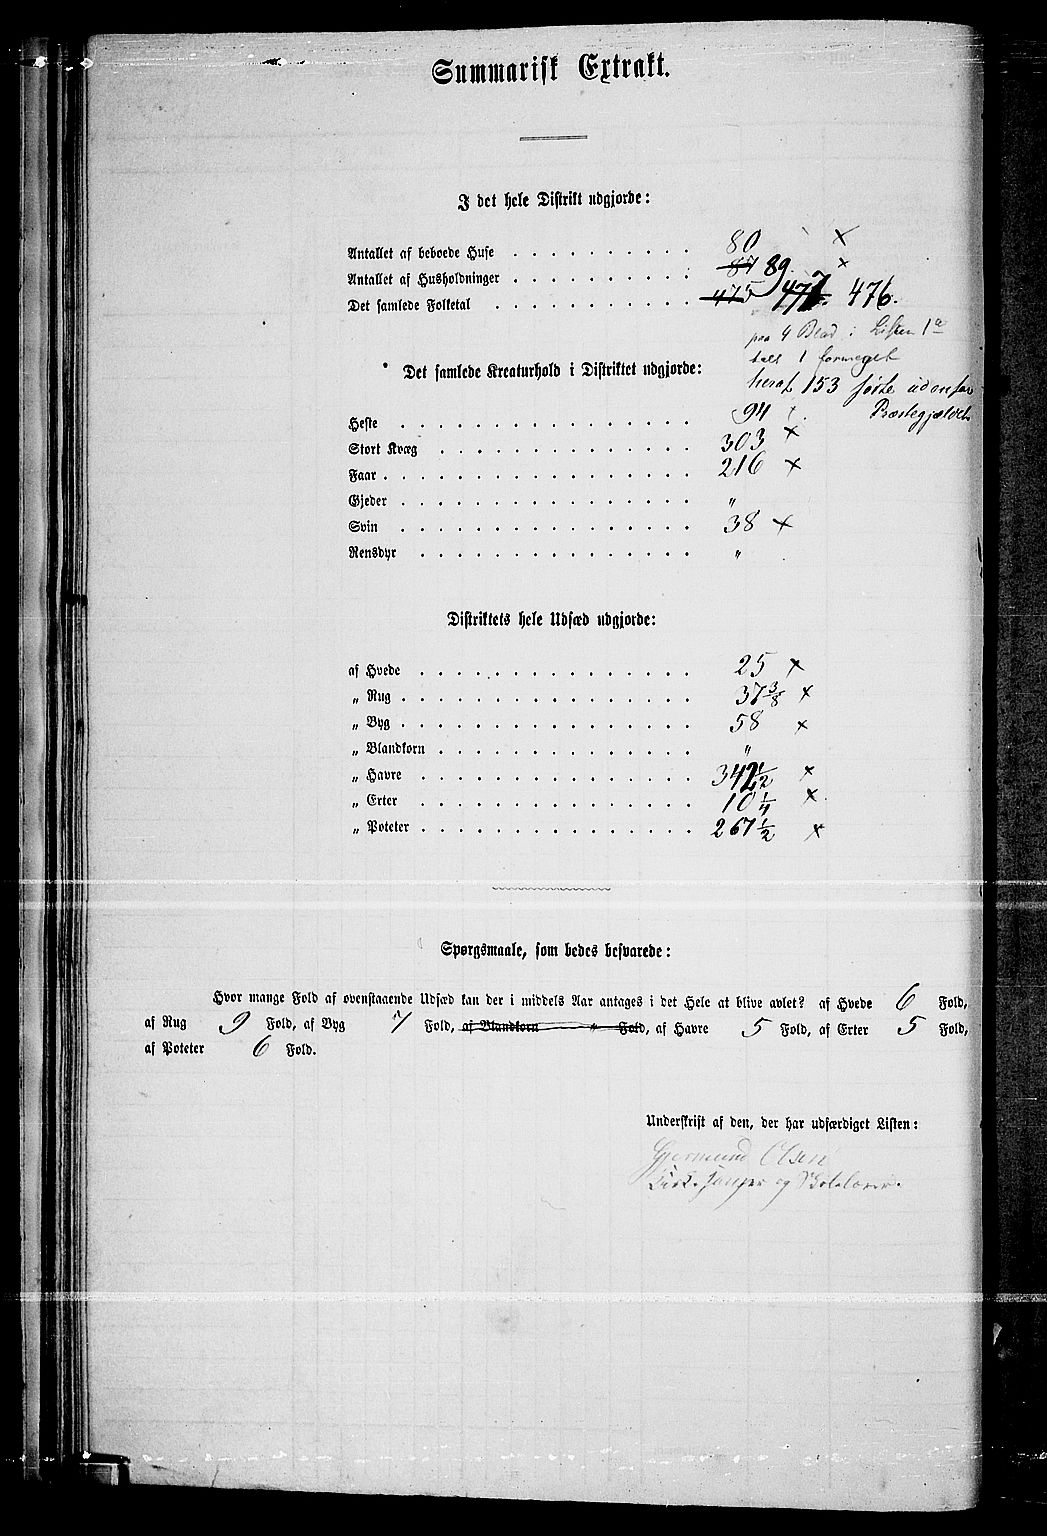 Summarisk Extrakt.
I det hele Distrikt udgjorde:
Antallet af beboede Huse . . . . . . . . . . 80 ×
Antallet af Husholdninger . . . . . . . . . . 87 89. ×
Det samlede Folketal . . . . . . . . . . . . 475 477. 476.
paa 4 Blad i Listen 1
talt 1 formeget
heraf 153 førte udenfor
Præstegjældet
Det samlede Kreaturhold i Distriktet udgjorde:
Heste . . . . . . . . . . . . . . . . 94
Stort Kvæg . . . . . . . . . . . . . . 303 ×
Faar . . . . . . . . . . . . . . . . . 216 ×
Gjeder . . . . . . . . . . . . . . . . "
Svin . . . . . . . . . . . . . . . . 38 ×
Rensdyr . . . . . . . . . . . . . . . "
Distriktets hele Udsæd udgjorde:
af Hvede . . . . . . . . . . . . . . . 25 ×
" Rug . . . . . . . . . . . . . . . . 37 3/8 ×
" Byg . . . . . . . . . . . . . . . . 58 ×
" Blandkorn . . . . . . . . . . . . . . "
" Havre . . . . . . . . . . . . . . . 342 1/2 ×
" Erter . . . . . . . . . . . . . . . 10 1/4 ×
" Poteter . . . . . . . . . . . . . . . 267 1/2 ×
Spørgsmaale, som bedes besvarede:
Hvor mange Fold af ovenstaaende Udsæd kan der i middels Aar antages i det Hele at blive avlet? af Hvede 6 Fold,
af Rug 9 Fold, af Byg 7 Fold, af Blandkorn " Fold, af Havre 5 Fold, af Erter 5 Fold,
af Poteter 6 Fold.
Underskrift af den, der har udfærdiget Listen:
Gjermund Olsen
Kirkesanger og Skolelærer.